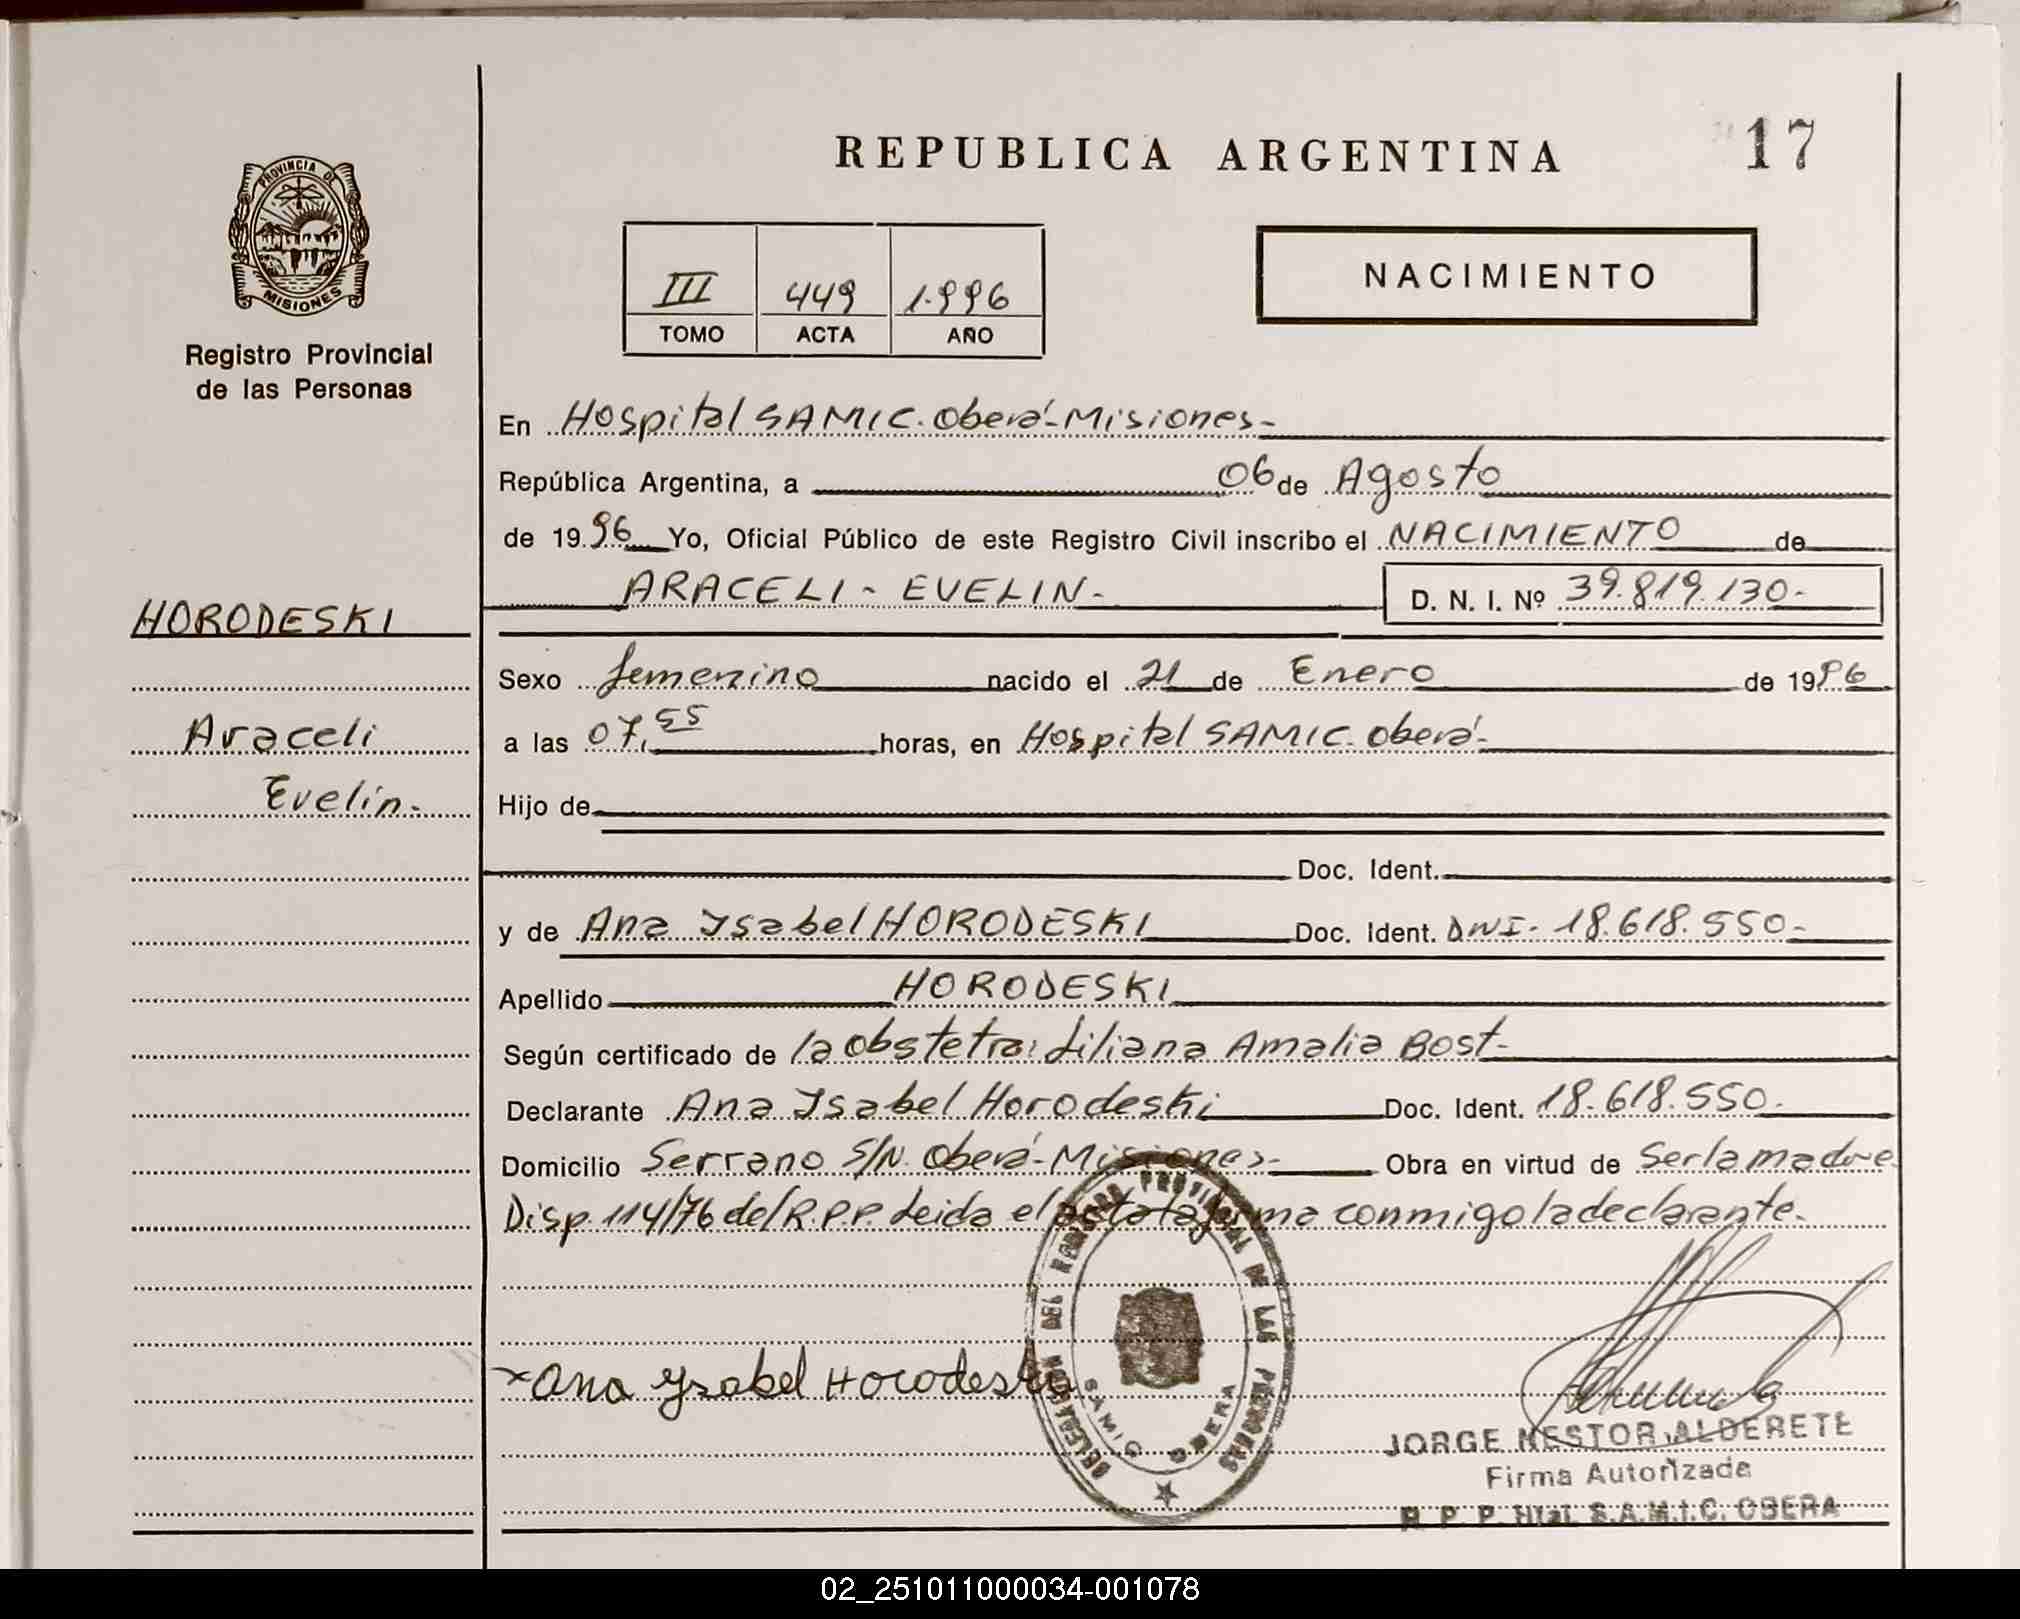 REPUBLICA ARGENTINA
17
PROVINCIA DE
MISIONES
Registro Provincial
de las Personas
III 449 1.996
TOMO ACTA AÑO
NACIMIENTO
En Hospital SAMIC. Oberá-Misiones-
República Argentina, a 06 de Agosto
de 1996 Yo, Oficial Público de este Registro Civil inscribo el NACIMIENTO de
ARACELI - EVELIN.- D. N. I. Nº 39.819.130-
HORODESKI
Araceli
Evelin.-
Sexo femenino nacido el 21 de Enero de 1996
a las 07,55 horas, en Hospital SAMIC. Oberá-
Hijo de
Doc. Ident.
y de Ana Isabel HORODESKI Doc. Ident. DNI- 18.618.550-
Apellido HORODESKI
Según certificado de la obstetra: Liliana Amalia Bost-
Declarante Ana Isabel Horodeski Doc. Ident. 18.618.550.
Domicilio Serrano S/N. Oberá-Misiones- Obra en virtud de Ser la madre
Disp. 114/76 del R.P.P. Leida el acta la firma conmigo la declarante.
DELEGACION DEL REGISTRO PROVINCIAL DE LAS PERSONAS
SAMIC OBERA
Ana Ysabel Horodeski
JORGE NESTOR ALDERETE
Firma Autorizada
R. P. P. Htal. S.A.M.I.C. OBERA
02_251011000034-001078